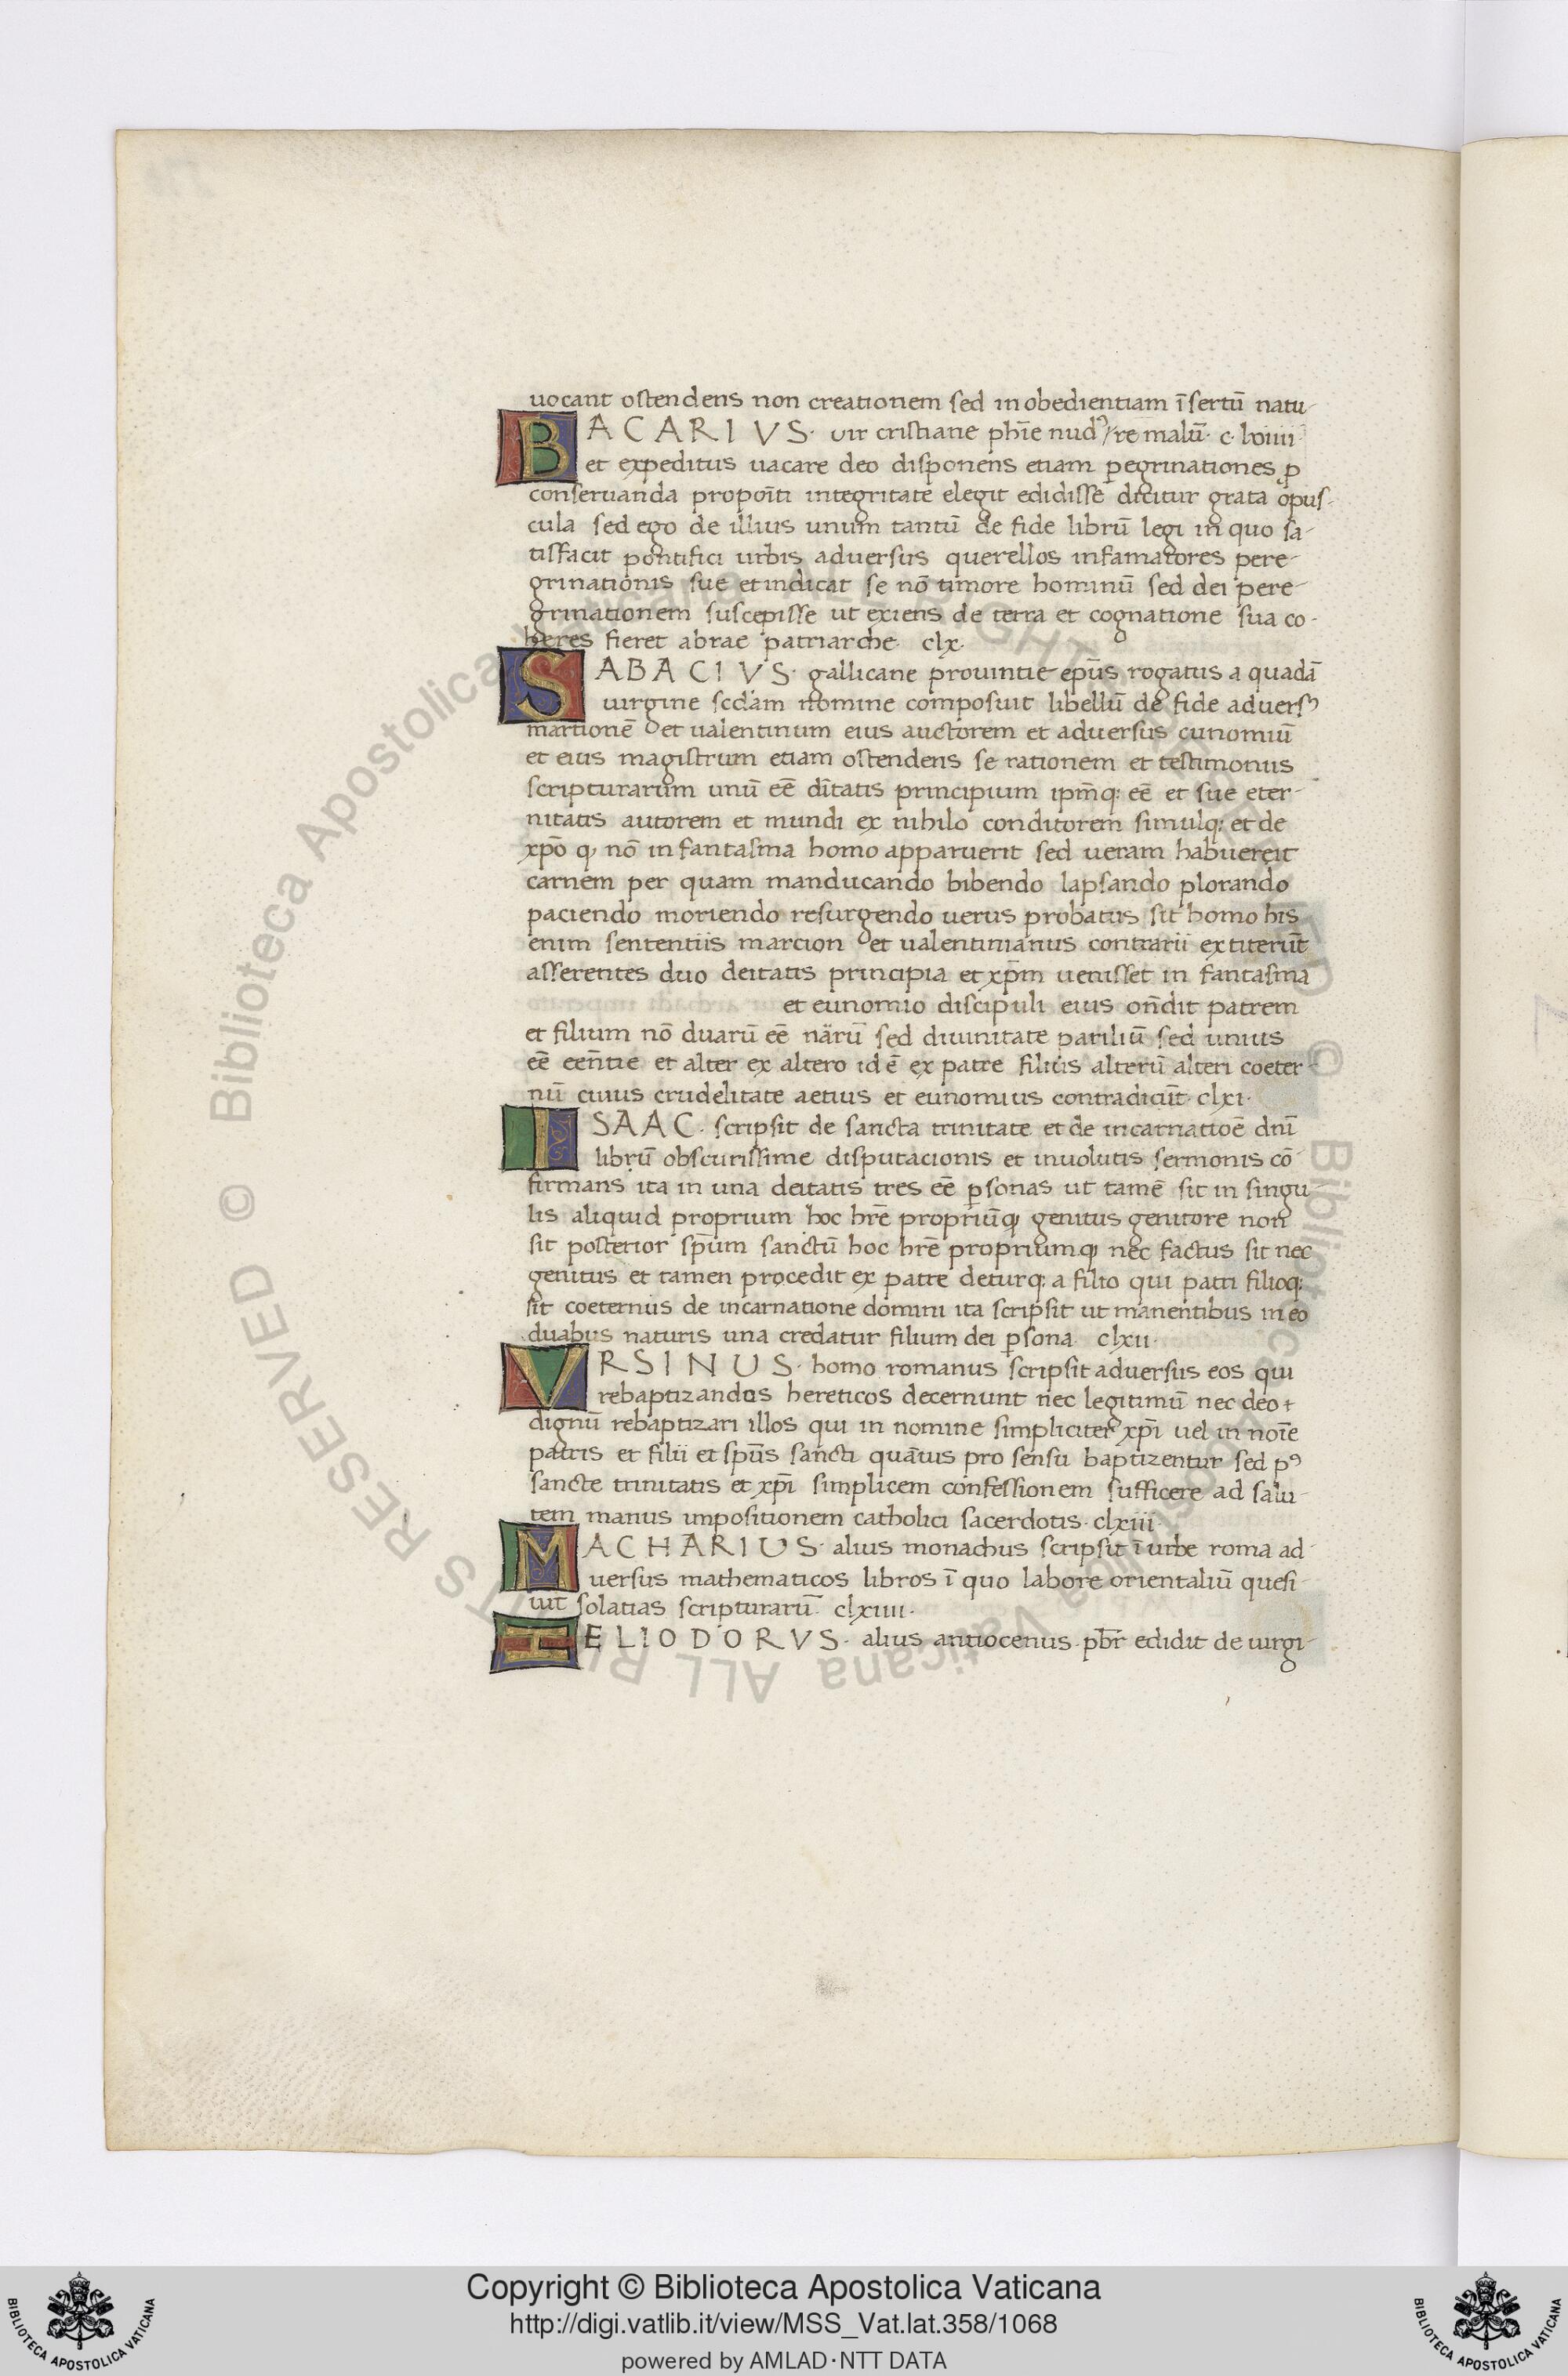 uocant ostendens non creationem sed inobedientiam ī sertū natu-
BACARIVS. uir cristiane phīe nudꝰ / re malū. c. lviiii
et expeditus uacare deo disponens etiam ꝑegrinationes ꝓ
conseruanda propoīti integritate elegit edidisse dicitur grata opus-
cula sed ego de illius unum tantū de fide librū legi in quo sa-
tisfacit pontifici urbis aduersus querellos infamatores pere-
grinationis sue et indicat se nō timore hominū sed dei pere-
grinationem suscepisse ut exiens de terra et cognatione sua co-
heres fieret abrae patriarche. clx.
SABACIVS. gallicane prouintie ep̄us rogatus a quadā
uirgine scdam nomine composuit libellū de fide aduersꝰ
martionē et ualentinum eius auctorem et aduersus cunomiū
et eius magistrum etiam ostendens se rationem et testimoniis
scripturarum unū eē dītatis principium ipm̄q; eē et sue eter-
nitatis autorem et mundi ex nihilo conditorem simulq; et de
xp̄o q, nō in fantasma homo apparuerit sed ueram habuereit
carnem per quam manducando bibendo lapsando plorando
paciendo moriendo resurgendo uerus probatus sit homo his
enim sententiis marcion et ualentinianus contrarii extiterūt
asserentes duo deitatis principia et xp̄m uenisset in fantasma
et eunomio discipuli eius on̄dit patrem
et filium nō duarū eē nārū sed diuinitate pariliū sed unius
eē een̄tie et alter ex altero id ē ex patre filius alterū alteri coeter-
nū cuius crudelitate aetius et eunomius contradicūt. clxi.
ISAAC. scripsit de sancta trinitate et de incarnatioē dnī
librū obscurissime disputacionis et inuolutis sermonis cō-
firmans ita in una deitatis tres eē ꝑsonas ut tamē sit in singu
lis aliquid proprium hoc hrē propriūq, genitus genitore non
sit posterior sp̄um sanctū hoc hrē propriumq, nec factus sit nec
genitus et tamen procedit ex patre deturq; a filio qui patri filioq;
sit coeternus de incarnatione domini ita scripsit ut manentibus in eo
duabus naturis una credatur filium dei ꝑsona clxii.
VRSINUS. homo romanus scripsit aduersus eos qui
rebaptizandos hereticos decernunt nec legitimū nec deo
dignū rebaptizari illos qui in nomine simpliciter xp̄i uel in noīe
patris et filii et sp̄us sancti quātus pro sensu baptizentur sed pꝰ
sancte trinitatis et xp̄i simplicem confessionem sufficere ad salu-
tem manus impositionem catholici sacerdotis. clxiii.
MACHARIUS. alius monachus scripsit ī urbe roma ad-
uersus mathematicos libros ī quo labore orientaliū quesi-
uit solatias scripturarū. clxiiii.
HELIODORVS. alius antiocenus. pb̄r edidit de uirgi-
© Biblioteca Apostolica Vaticana ALL RIGHTS RESERVED
Copyright © Biblioteca Apostolica Vaticana
http://digi.vatlib.it/view/MSS_Vat.lat.358/1068
powered by AMLAD·NTT DATA
BIBLIOTECA APOSTOLICA VATICANA
BIBLIOTECA APOSTOLICA VATICANA